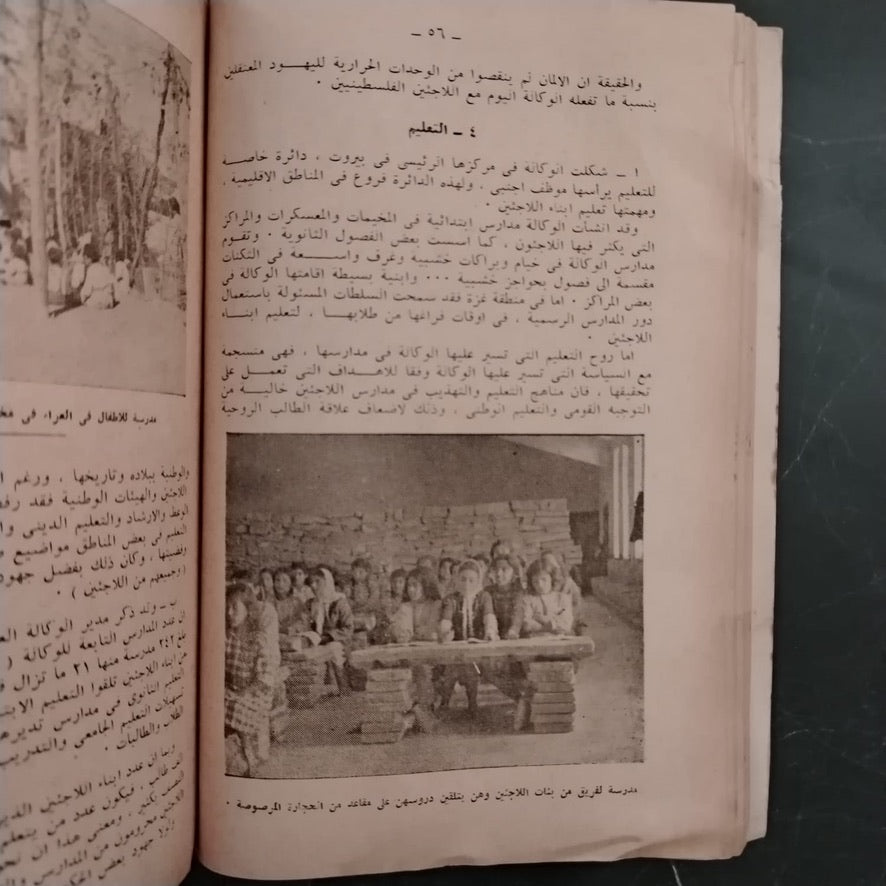 ـ ٥٦ ـ
والحقيقة ان الالمان لم ينقصوا من الوحدات الحرارية لليهود المعتقلين
بنسبة ما تفعله الوكالة اليوم مع اللاجئين الفلسطينيين .
٤ ـ التعليم
١ ـ شكلت الوكالة فى مركزها الرئيسى فى بيروت ، دائرة خاصة
للتعليم يرأسها موظف اجنبى ، ولهذه الدائرة فروع فى المناطق الاقليمية .
ومهمتها تعليم ابناء اللاجئين .
وقد انشأت الوكالة مدارس ابتدائية فى المخيمات والمعسكرات والمراكز
التى يكثر فيها اللاجئون ، كما اسست بعض الفصول الثانوية . وتقوم
مدارس الوكالة فى خيام وبراكات خشبية وغرف واسعة فى الثكنات
مقسمة الى فصول بحواجز خشبية ... وابنية بسيطة اقامتها الوكالة فى
بعض المراكز . اما فى منطقة غزة فقد سمحت السلطات المسئولة باستعمال
دور المدارس الرسمية ، فى اوقات فراغها من طلابها ، لتعليم ابناء
اللاجئين .
اما روح التعليم التى تسير عليها الوكالة فى مدارسها ، فهى منسجمة
مع السياسة التى تسير عليها الوكالة وفقا للاهداف التى تعمل على
تحقيقها ، فان مناهج التعليم والتهذيب فى مدارس اللاجئين خالية من
التوجيه القومى والتعليم الوطنى ، وذلك لاضعاف علاقة الطالب الروحية
مدرسة لفريق من بنات اللاجئين وهن يتلقين دروسهن على مقاعد من الحجارة المرصوصة .
مدرسة للاطفال فى العراء فى
والوطنية ببلاده وتاريخها ، ورغم
اللاجئين والهيئات الوطنية فقد
الوعظ والارشاد والتعليم الدينى
التعليم فى بعض المناطق مواضيع
وقضيتها ، وكان ذلك بفضل جهود
( وجميعهم من اللاجئين ) .
ب ـ ولقد ذكر مدير الوكالة
ان عدد المدارس التابعة للوكالة (
بلغ ٢٤٢ مدرسة منها ٢١ ما تزال
من ابناء اللاجئين تلقوا التعليم
التعليم الثانوى فى مدارس تديرها
تسهيلات التعليم الجامعى والتدريب
الطلاب والطالبات .
وبما ان عدد ابناء اللاجئين
الف طالب ، فيكون عدد من يتعلم
النصف بكثير ، ومعنى هذا ان
اللاجئين محرومون من المدارس
ولولا جهود بعض